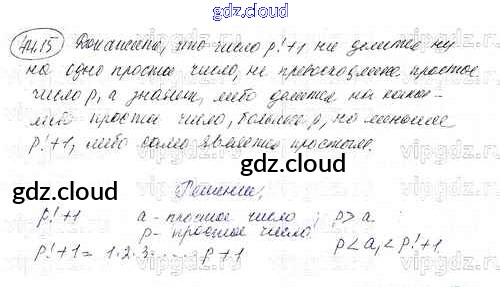 gdz.cloud
44.15 Докажите, что число p!+1 не делится ни
на одно простое число, не превосходящее простое
число p, а значит, либо делится на какое-
либо простое число, больше p, но меньшее
p!+1, либо само является простым.
gdz.cloud
gdz.cloud
Решение:
p!+1 a - простое число ; p>a
p - простое число. p<a₁<p!+1
p!+1 = 1·2·3·.... p+1
gdz.cloud